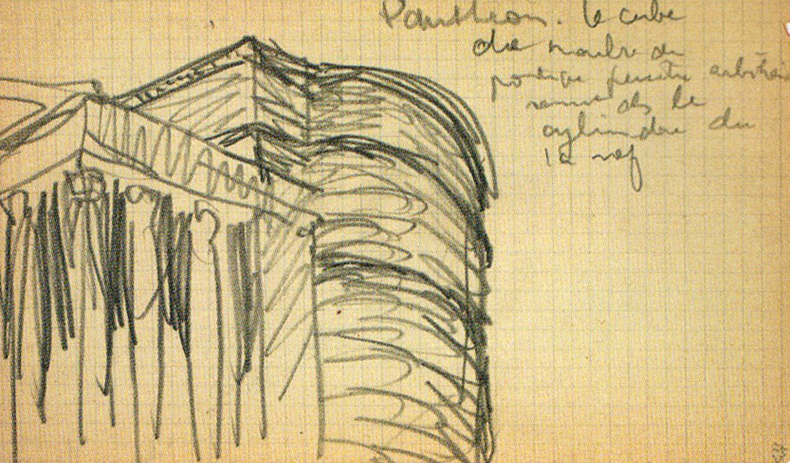 Panthéon. Le cube
de marbre du
portique pénètre arbitrai
dans le
cylindre du
la nef